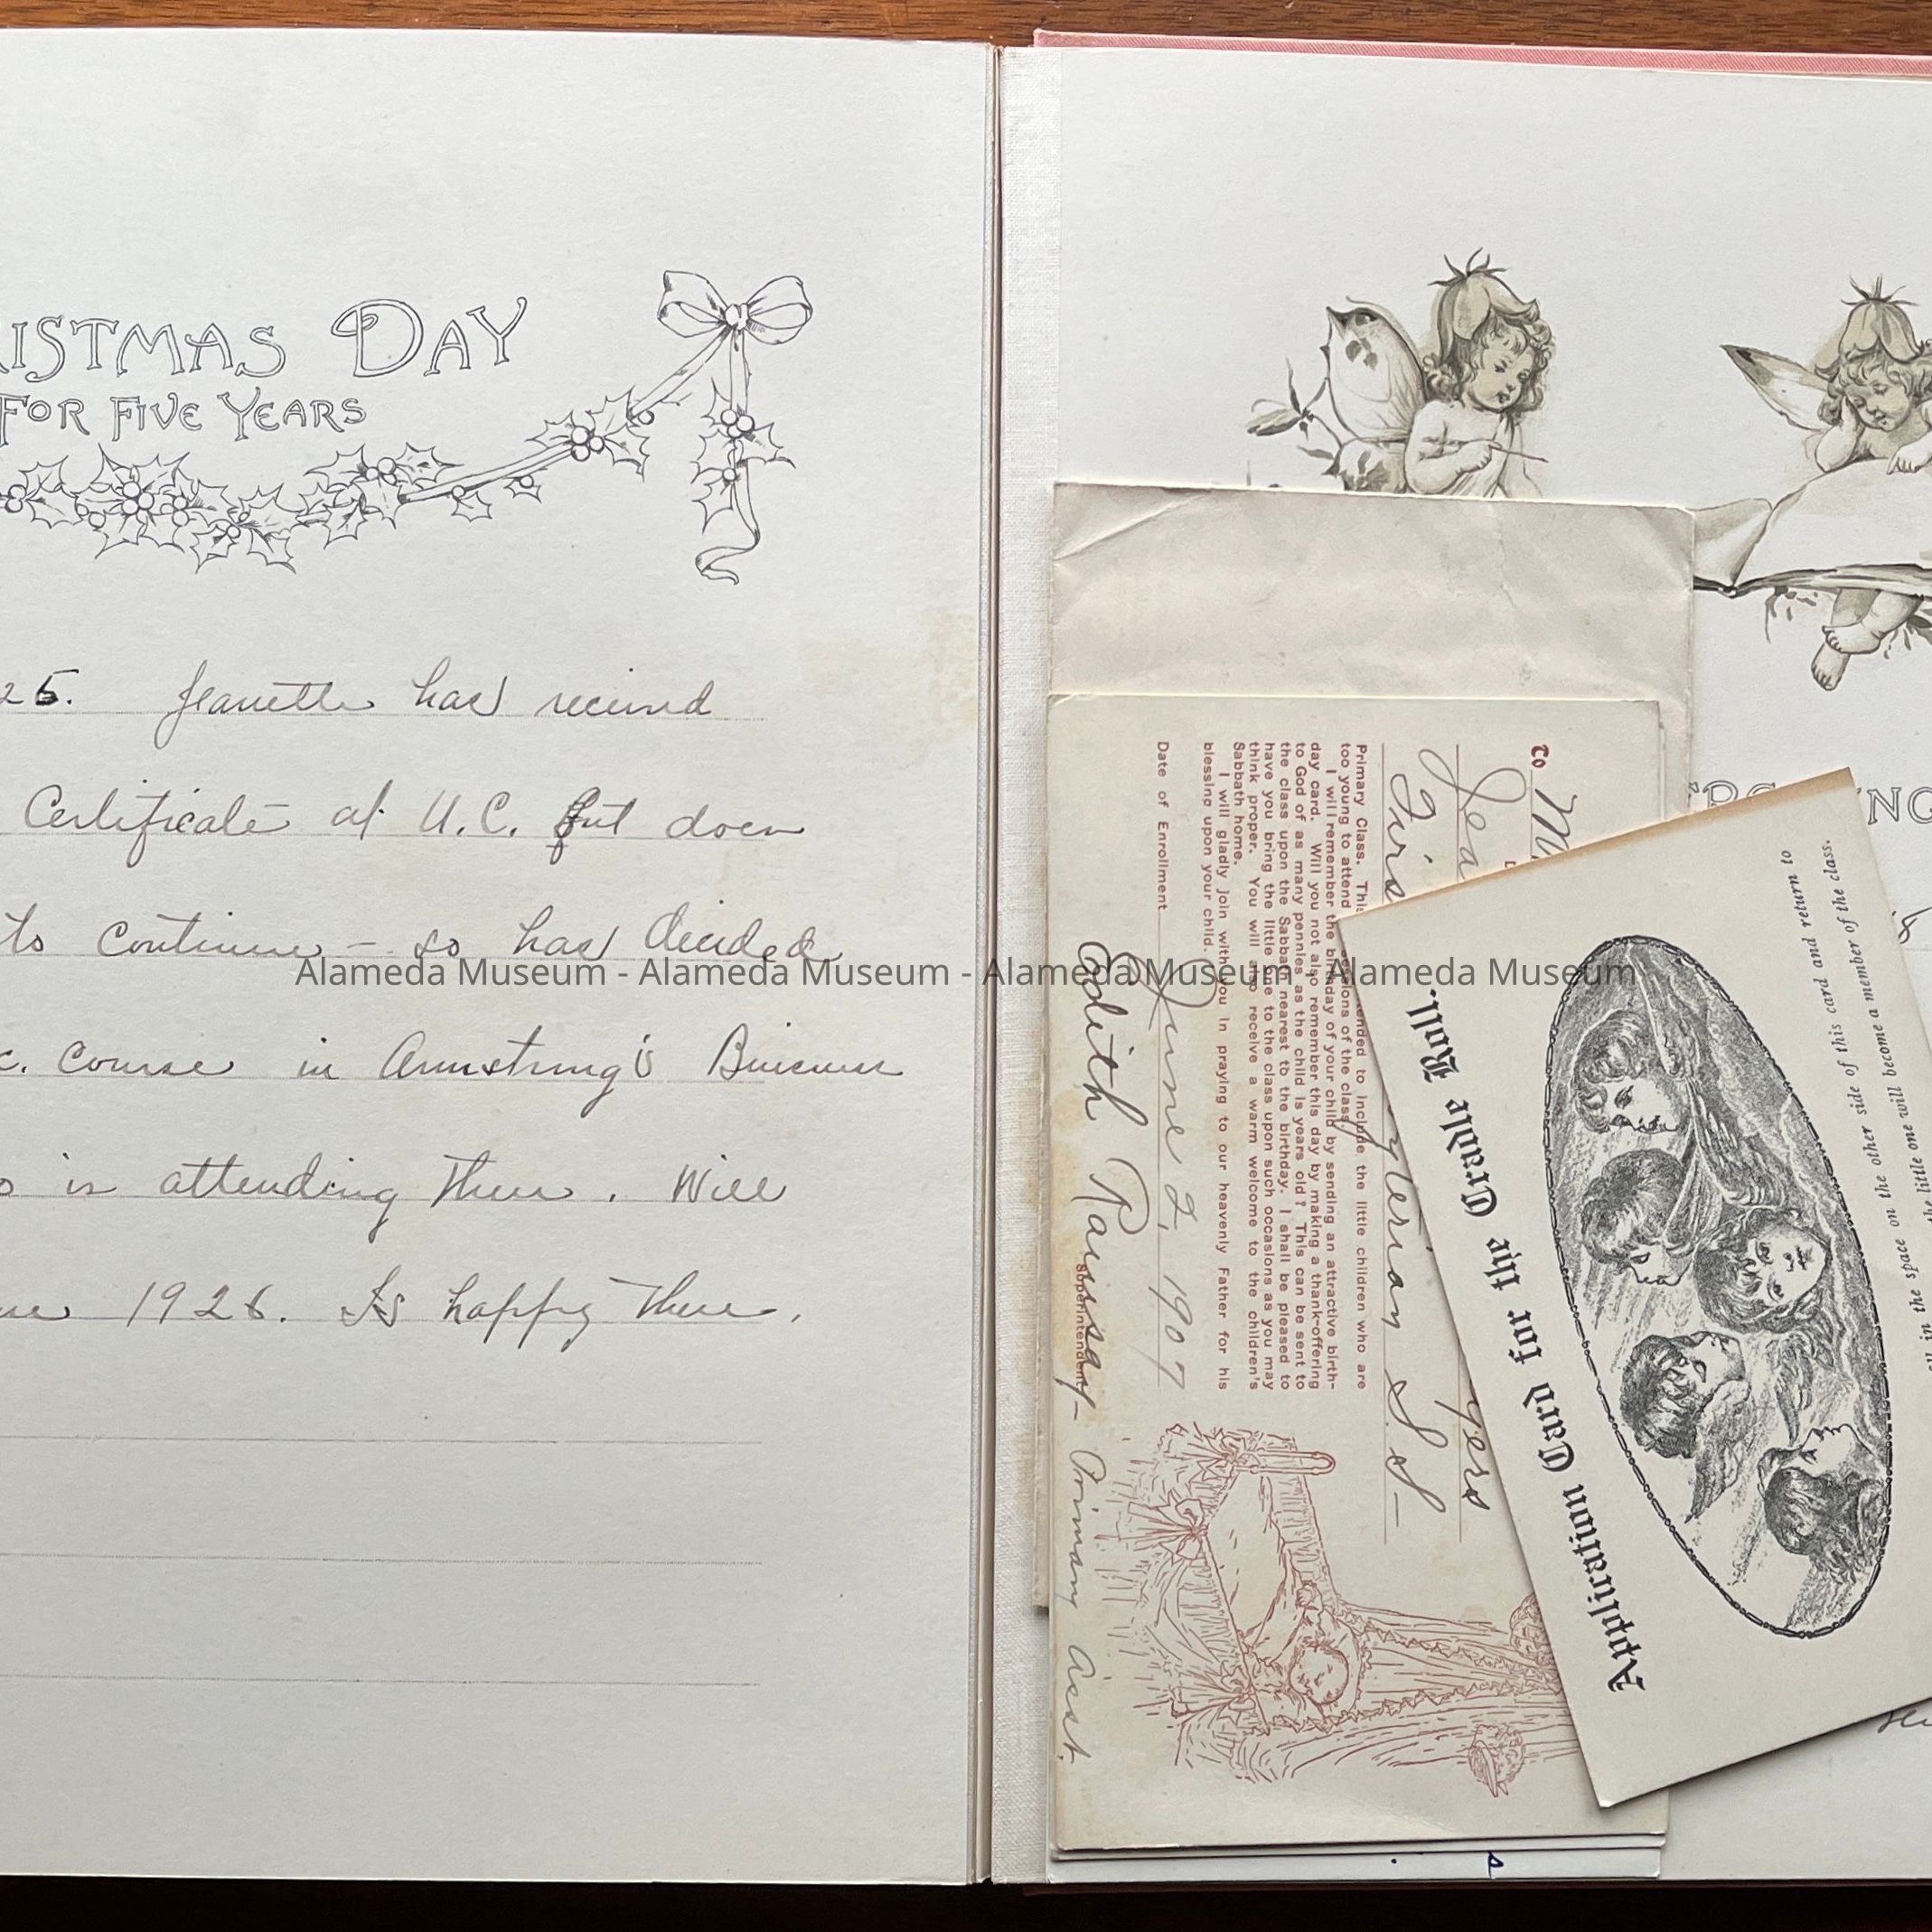 RISTMAS DAY
FOR FIVE YEARS
25. Jeanette has received
Certificate at U.C. but does
to continue - so has decided
c. Course in Armstrong's Business
is attending there. Will
1926. Is happy there.
Alameda Museum - Alameda Museum - Alameda Museum - Alameda Museum
To M
Jea
gers
Firs
yterian S.S-
Primary Class. This
ended to include the little children who are
too young to attend
sessions of the class.
I will remember the birthday of your child by sending an attractive birth-
day card. Will you not also remember this day by making a thank-offering
to God of as many pennies as the child is years old? This can be sent to
the class upon the Sabbath nearest to the birthday. I shall be pleased to
have you bring the little one to the class upon such occasions as you may
think proper. You will also receive a warm welcome to the children's
Sabbath home.
I will gladly join with you in praying to our heavenly Father for his
blessing upon your child.
Date of Enrollment June 2, 1907
Edith Ramsay - Primary Asst.
Superintendent
Application Card for the Cradle Roll.
in the space on the other side of this card and return to
the little one will become a member of the class.